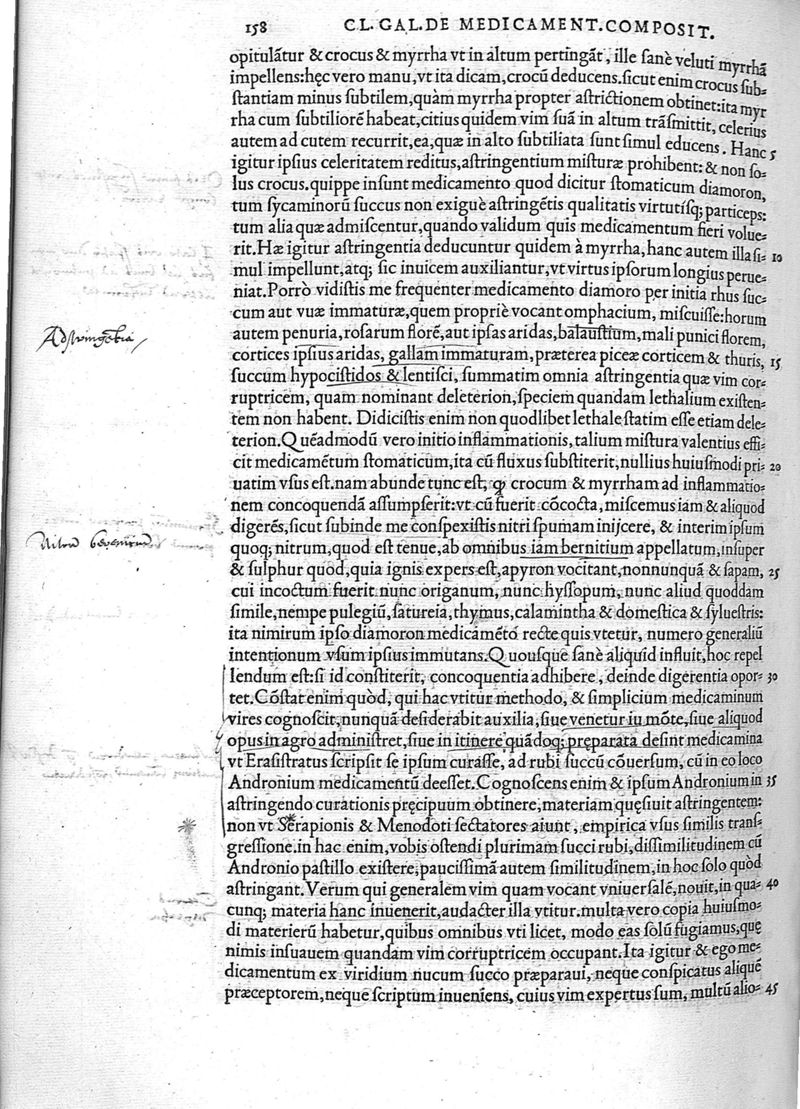 158 CL. GAL. DE MEDICAMENT. COMPOSIT.
opitulãtur & crocus & myrrha vt in altum pertingãt, ille sanè veluti myrrhã
impellens: hęc vero manu, vt ita dicam, crocũ deducens. sicut enim crocus sub=
stantiam minus subtilem, quàm myrrha propter astrictionem obtinet: ita myr
rha cum subtiliorẽ habeat, citius quidem vim suã in altum trãsmittit, celerius
autem ad cutem recurrit, ea, quæ in alto subtiliata sunt simul educens. Hanc 5
igitur ipsius celeritatem reditus, astringentium misturæ prohibent: & non so=
lus crocus. quippe insunt medicamento quod dicitur stomaticum diamoron,
tum sycaminorũ succus non exiguè astringẽtis qualitatis virtutisq; particeps:
tum alia quæ admiscentur, quando validum quis medicamentum fieri volue=
rit. Hæ igitur astringentia deducuntur quidem à myrrha, hanc autem illa si= 10
mul impellunt, atq; sic inuicem auxiliantur, vt virtus ipsorum longius perue=
niat. Porrò vidistis me frequenter medicamento diamoro per initia rhus suc=
cum aut vuæ immaturæ, quem propriè vocant omphacium, miscuisse: horum
Adstringẽtia
autem penuria, rosarum florẽ, aut ipsas aridas, balaustium, mali punici florem,
cortices ipsius aridas, gallam immaturam, præterea piceæ corticem & thuris, 15
succum hypocistidos & lentisci, summatim omnia astringentia quæ vim cor=
ruptricem, quam nominant deleterion, speciem quandam lethalium existen=
tem non habent. Didicistis enim non quodlibet lethale statim esse etiam dele=
terion. Quẽadmodũ vero initio inflammationis, talium mistura valentius effi=
cit medicamẽtum stomaticum, ita cũ fluxus substiterit, nullius huiusmodi pri= 20
uatim vsus est. nam abunde tunc est, ꝙ crocum & myrrham ad inflammatio=
nem concoquendã assumpserit: vt cũ fuerit cõcocta, miscemus iam & aliquod
digerẽs, sicut subinde me conspexistis nitri spumam inijcere, & interim ipsum
quoq; nitrum, quod est tenue, ab omnibus iam bernitium appellatum, insuper
& sulphur quod, quia ignis expers est, apyron vocitant, nonnunquã & sapam, 25
cui incoctum fuerit nunc origanum, nunc hyssopum, nunc aliud quoddam
simile, nempe pulegiũ, satureia, thymus, calamintha & domestica & syluestris:
ita nimirum ipso diamoron medicamẽto recte quis vtetur, numero generaliũ
intentionum vsum ipsius immutans. Quousque sanè aliquid influit, hoc repel
lendum est: si id constiterit, concoquentia adhibere, deinde digerentia opor= 30
tet. Cõstat enim quòd, qui hac vtitur methodo, & simplicium medicaminum
vires cognoscit, nunquã desiderabit auxilia, siue venetur iu mõte, siue aliquod
opus in agro administret, siue in itinere quãdoq; pręparata desint medicamina
vt Erasistratus scripsit se ipsum curasse, ad rubi succũ cõuersum, cũ in eo loco
Andronium medicamentũ deesset. Cognoscens enim & ipsum Andronium in 35
astringendo curationis pręcipuum obtinere, materiam quęsiuit astringentem:
non vt Serapionis & Menodoti sectatores aiunt, empirica vsus similis trans=
gressione. in hac enim, vobis ostendi plurimam succi rubi, dissimilitudinem cũ
Andronio pastillo existere, paucissimã autem similitudinem, in hoc solo quòd
astringant. Verum qui generalem vim quam vocant vniuersalẽ, nouit, in qua= 40
cunq; materia hanc inuenerit, audacter illa vtitur. multa vero copia huiusmo=
di materierũ habetur, quibus omnibus vti licet, modo eas solũ fugiamus, quę
nimis insuauem quandam vim corruptricem occupant. Ita igitur & ego me=
dicamentum ex viridium nucum succo præparaui, neque conspicatus aliquẽ
præceptorem, neque scriptum inueniens, cuius vim expertus sum, multũ alio= 45